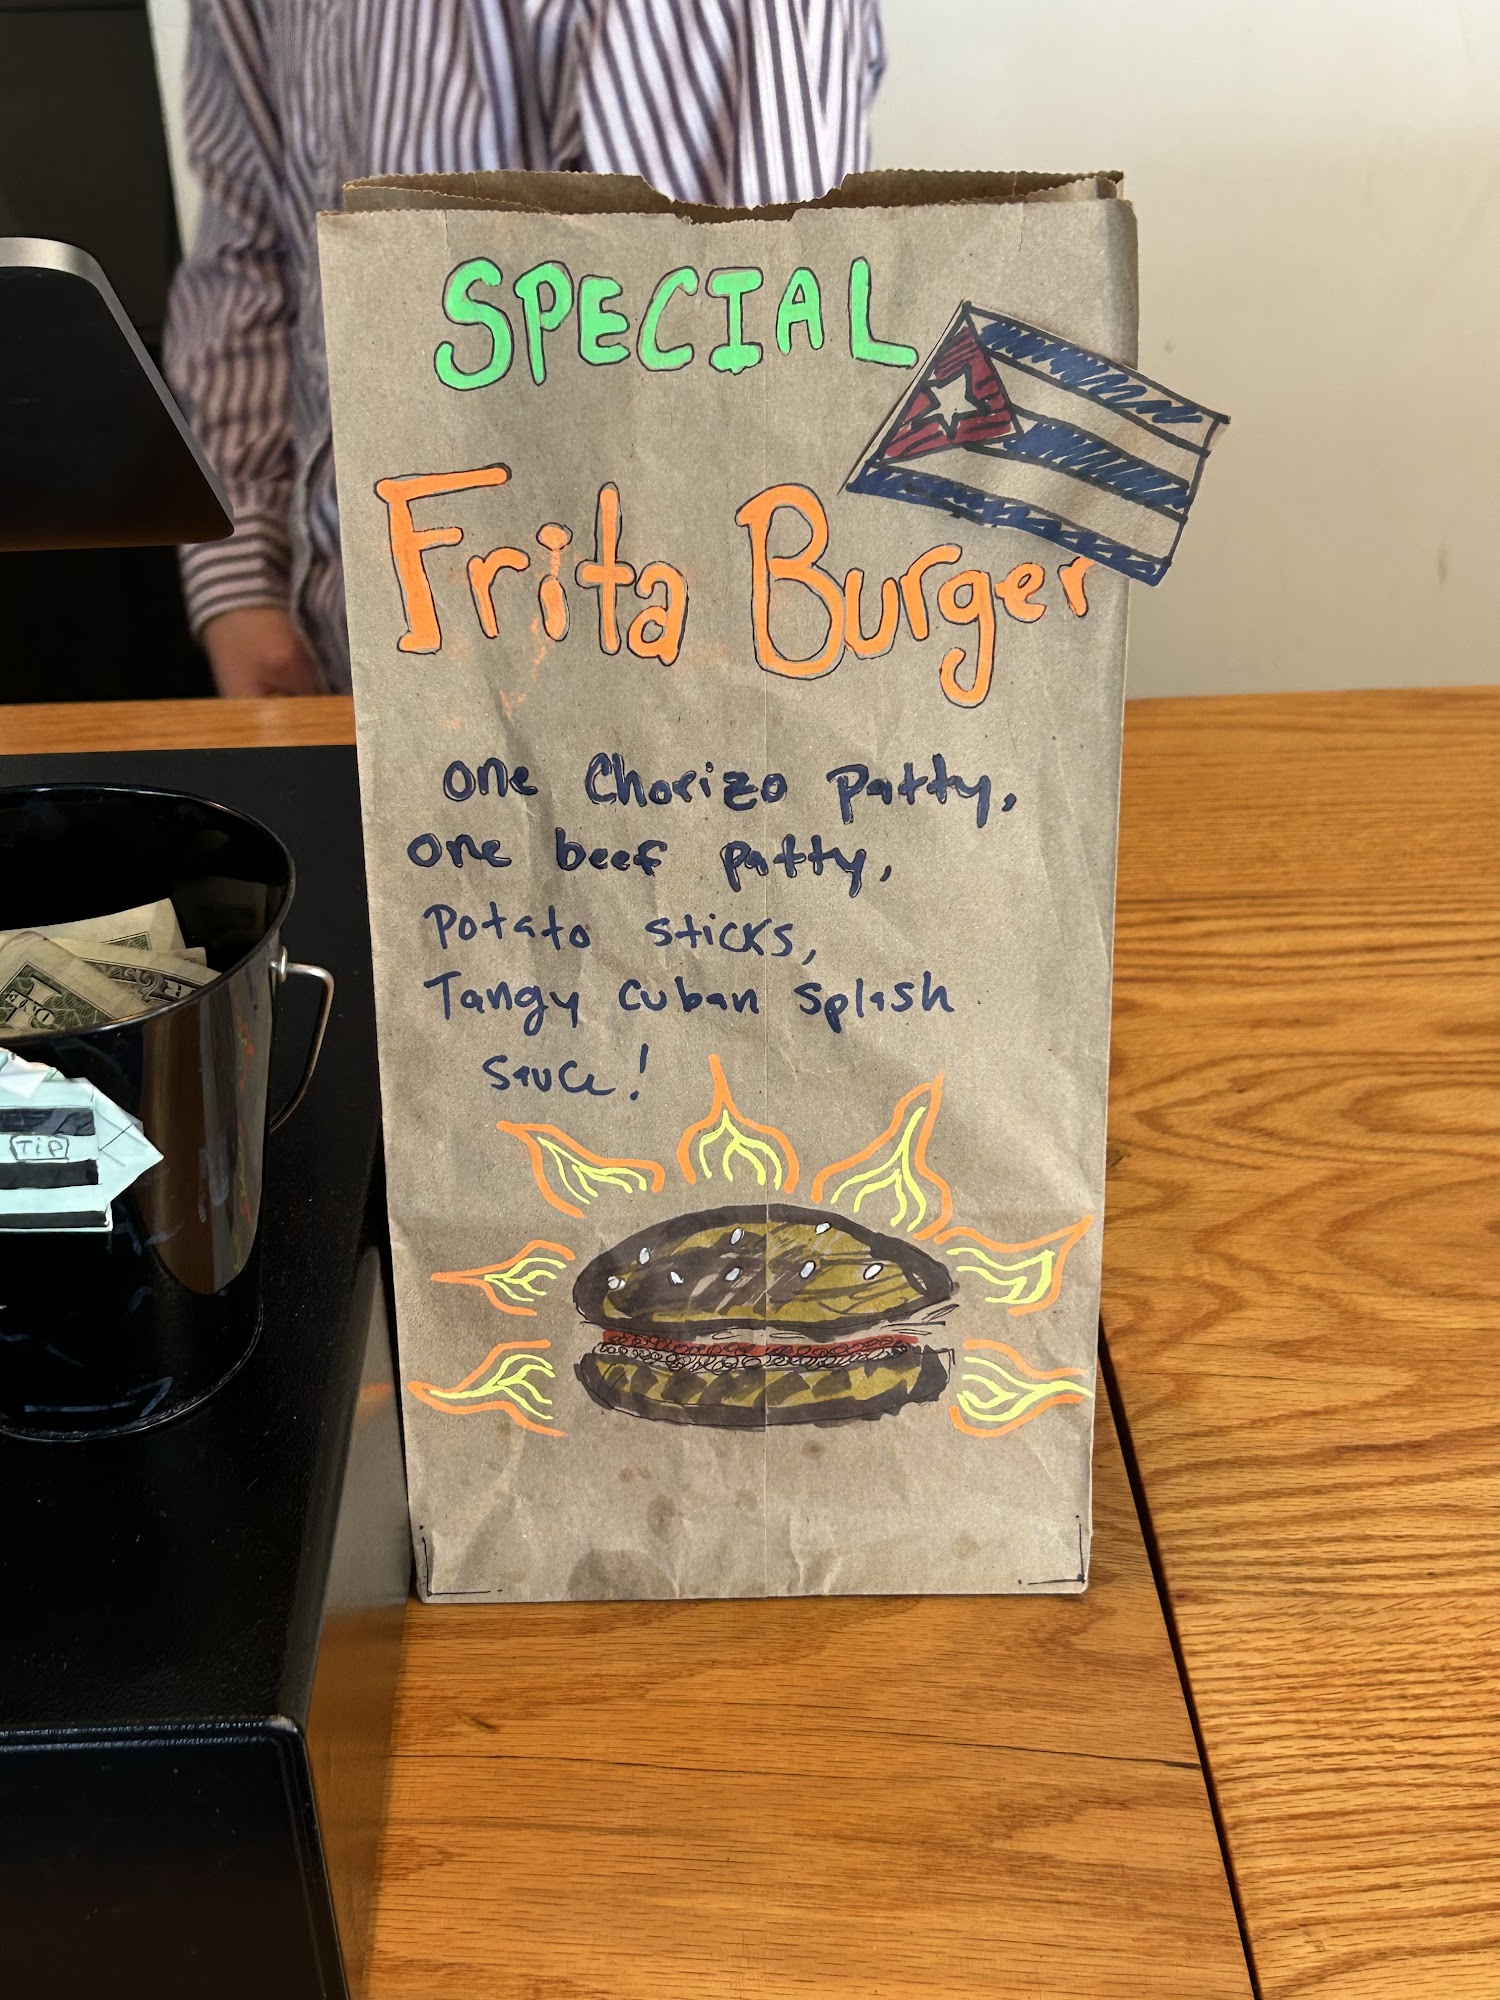 SPECIAL
Frita Burger
one Chorizo patty,
one beef patty,
Potato sticks,
Tangy Cuban Splash
sauce!
TiP